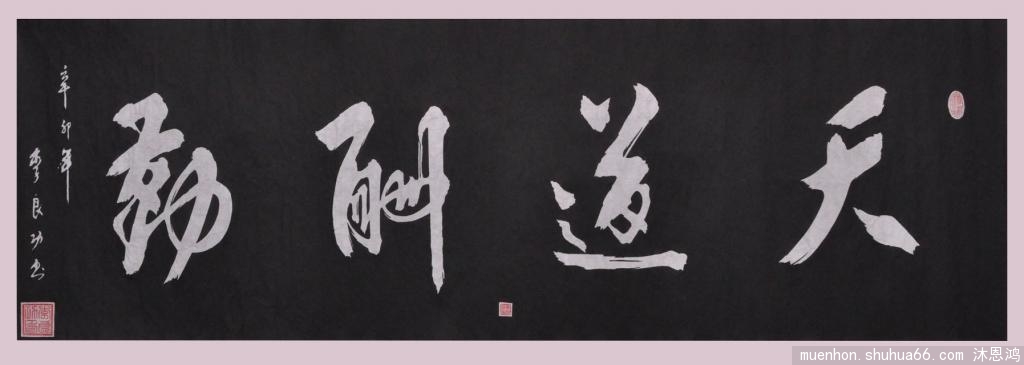 天道酬勤
辛卯年
李良功书
muenhon.shuhua66.com 沐恩鸿